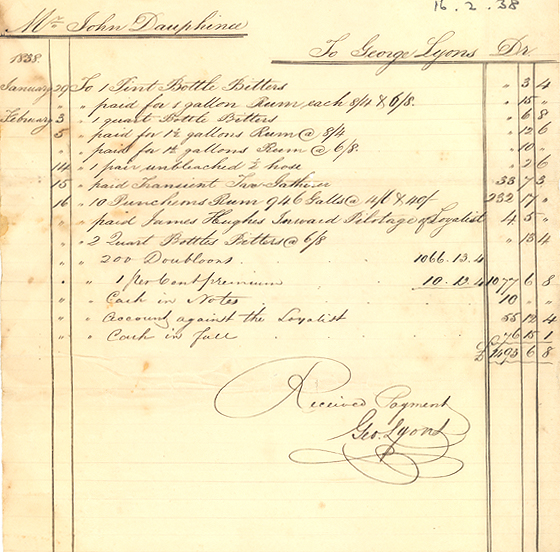 16. 2. 38
Mr John Dauphine
To George Lyons Dr
1838
January 29 To 1 Pint Bottle Bitters " 3 4
" " " paid for 1 gallon Rum each 8/4 & 6/8 " 15 "
February 3 " 1 quart Bottle Bitters " 6 8
" 5 " paid for 1½ gallons Rum @ 8/4 " 12 6
" " " paid for 1½ gallons Rum @ 6/8 " 10 "
" 14 " 1 pair unbleached ½ hose " 2 6
" 15 " paid Transient Tax Gatherer 33 7 3
" 16 " 10 Puncheons Rum 946 Galls @ 4/ & 40/ 232 17 "
" " " paid James Hughes Inward Pilotage of Loyalist 4 5 "
" " " 2 Quart Bottles Bitters @ 6/8 " 13 4
" " " 200 Doubloons 1066. 13. 4
" " " 1 per Cent premium 10. 13. 4 1077 6 8
" " " Cash in Notes 10 " "
" " " Account against the Loyalist 55 12 4
" " " Cash in full 76 15 1
£ 1493 6 8
Received Payment
Geo. Lyons